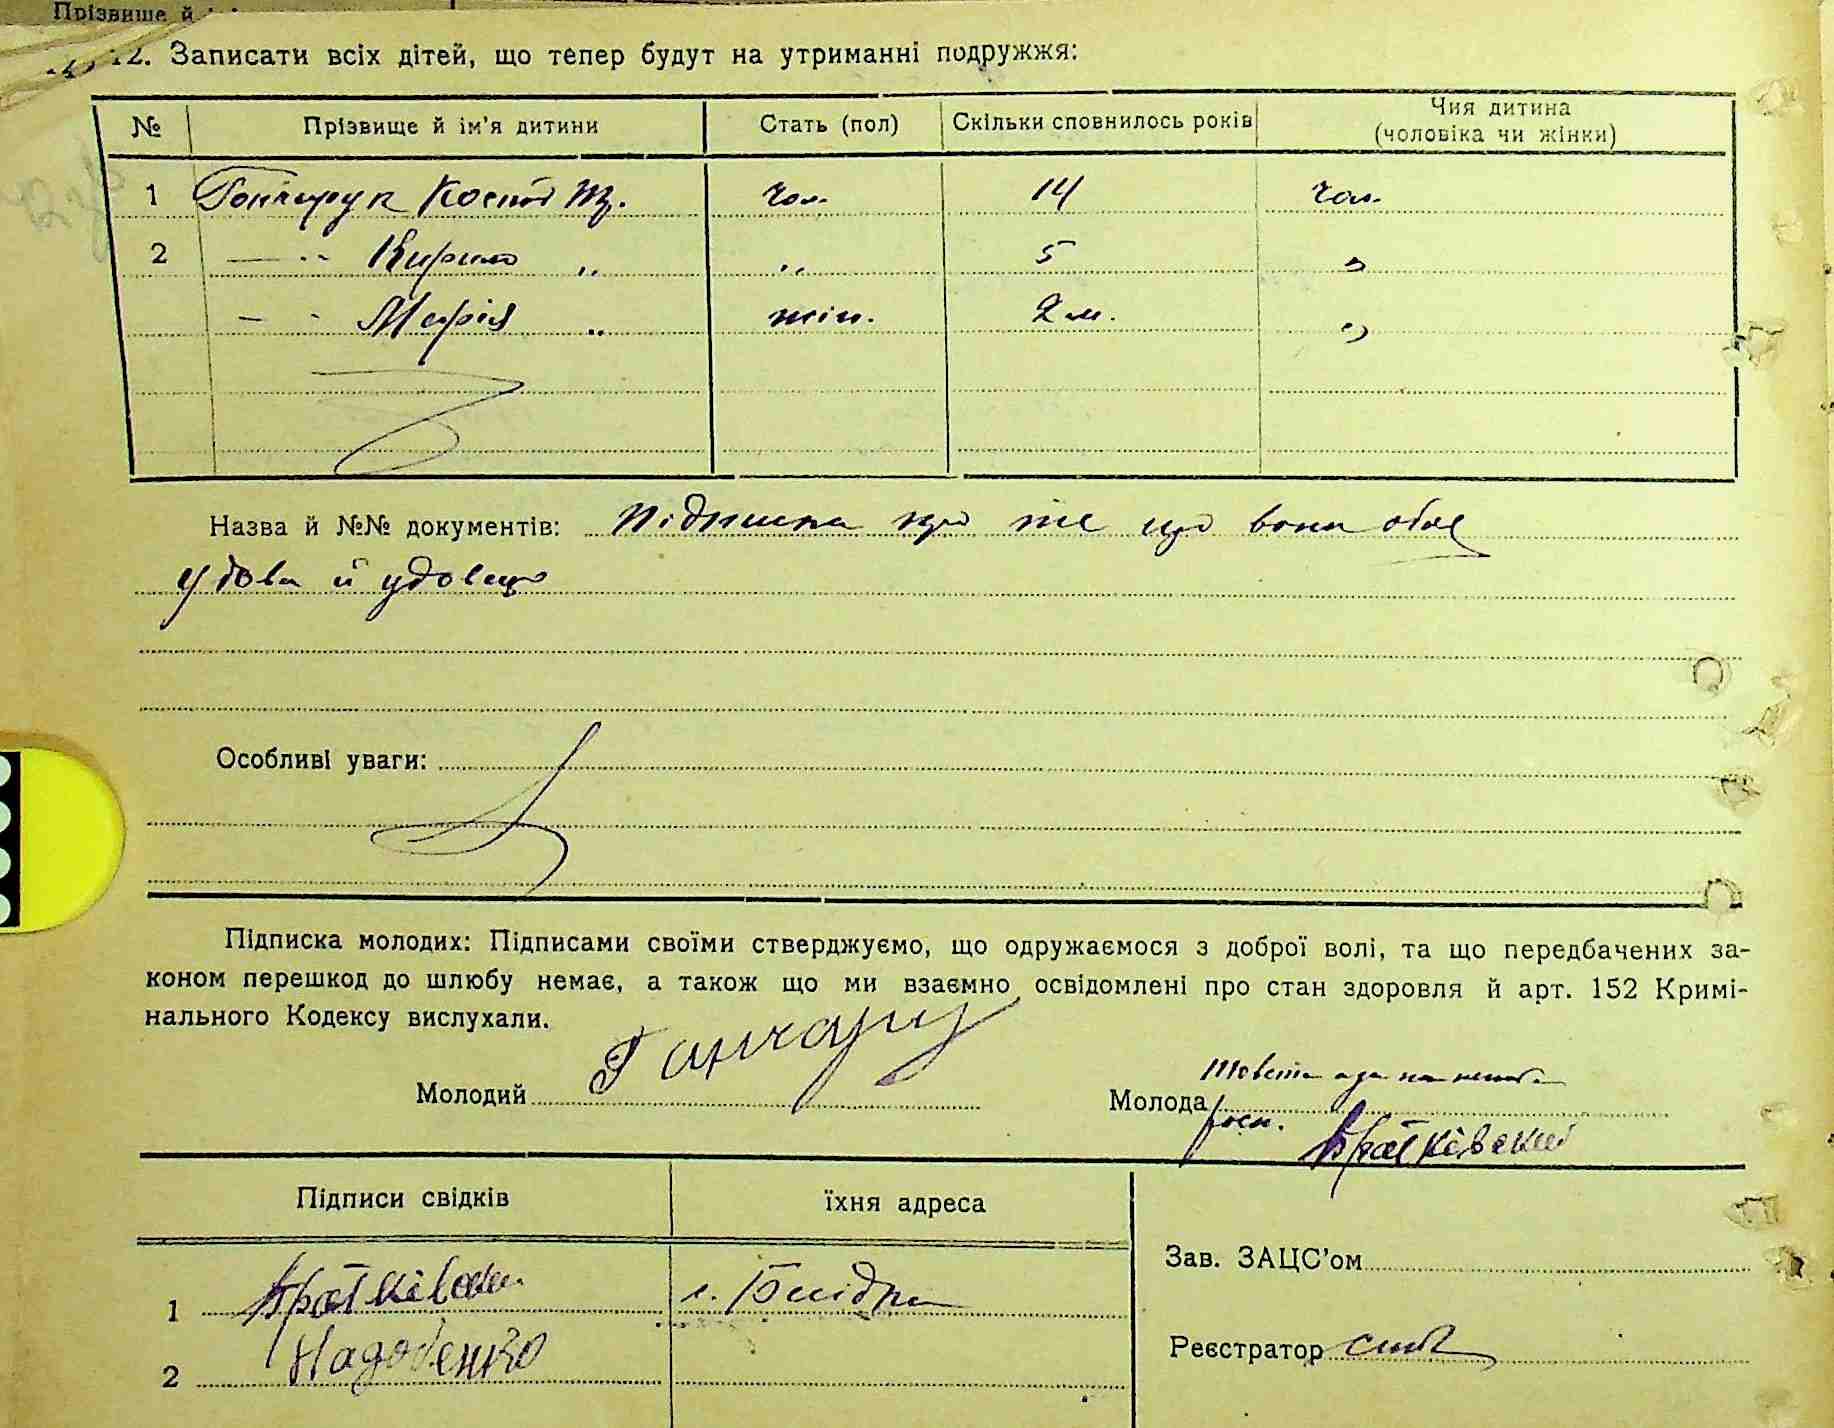 Прізвище й
12. Записати всіх дітей, що тепер будут на утриманні подружжя:
№ Прізвище й ім'я дитини Стать (пол) Скільки сповнилось років Чия дитина (чоловіка чи жінки)
1 Гончарук чол. 14 чол.
2 — „ Кирило „ „ 5 „
— „ Марія „ жін. 2 м. „
Назва й №№ документів: підписка про те що вони обоє
удова й удовець
Особливі уваги:
Підписка молодих: Підписами своїми стверджуємо, що одружаємося з доброї волі, та що передбачених за-
коном перешкод до шлюбу немає, а також що ми взаємно освідомлені про стан здоровля й арт. 152 Кримі-
нального Кодексу вислухали.
Молодий Ганчарук
Молода
Братківский
Підписи свідків їхня адреса
Зав. ЗАЦС'ом
1 Братківский
Реєстратор
2 Надобенко